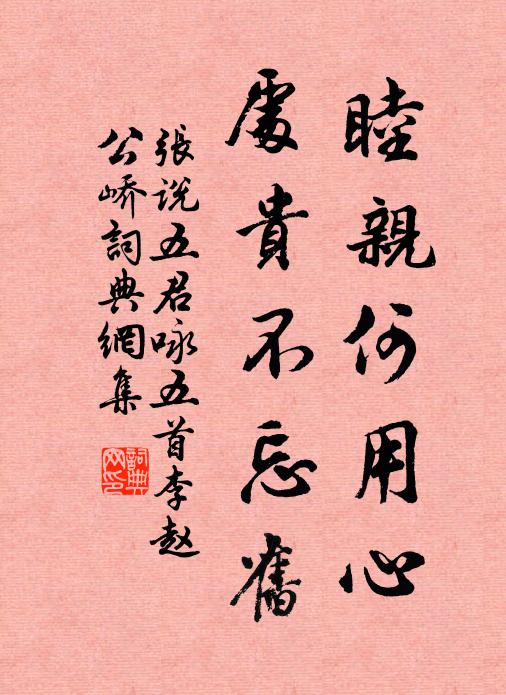 睦親何用心
處貴不忘舊
張说五君咏五首李赵
公峤詞典網集
詞典
网印